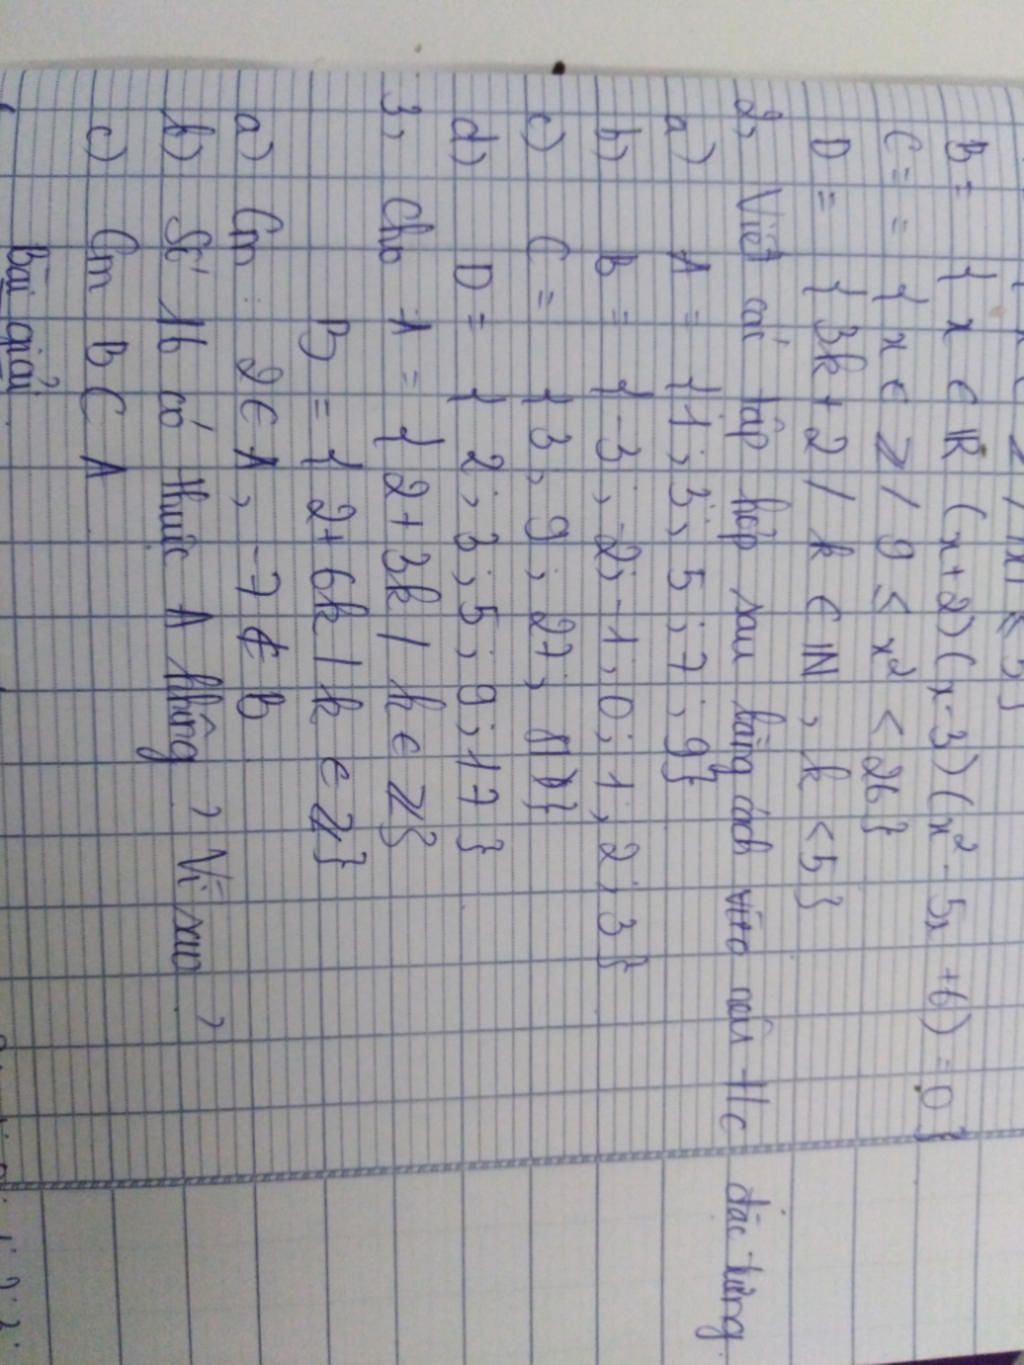 B = { x ∈ ℝ (x+2)(x-3)(x² - 5x +6) = 0 }
C = = { x ∈ Z / 9 ≤ x² < 26 }
D = { 3k + 2 / k ∈ ℕ, k < 5 }
2, Viết các tập hợp sau bằng cách nêu t/c đặc trưng
a) A = { 1 ; 3 ; 5 ; 7 ; 9 }
b) B = { -3 ; -2 ; -1 ; 0 ; 1 ; 2 ; 3 }
c) C = { 3 ; 9 ; 27 ; }
d) D = { 2 ; 3 ; 5 ; 9 ; 17 }
3, Cho A = { 2 + 3k / k ∈ Z }
B = { 2 + 6k / k ∈ Z }
a) Cm : 2 ∈ A, -7 ∉ B
b) Số 16 có thuộc A không ? Vì sao ?
c) Cm B ⊂ A
Bài giải